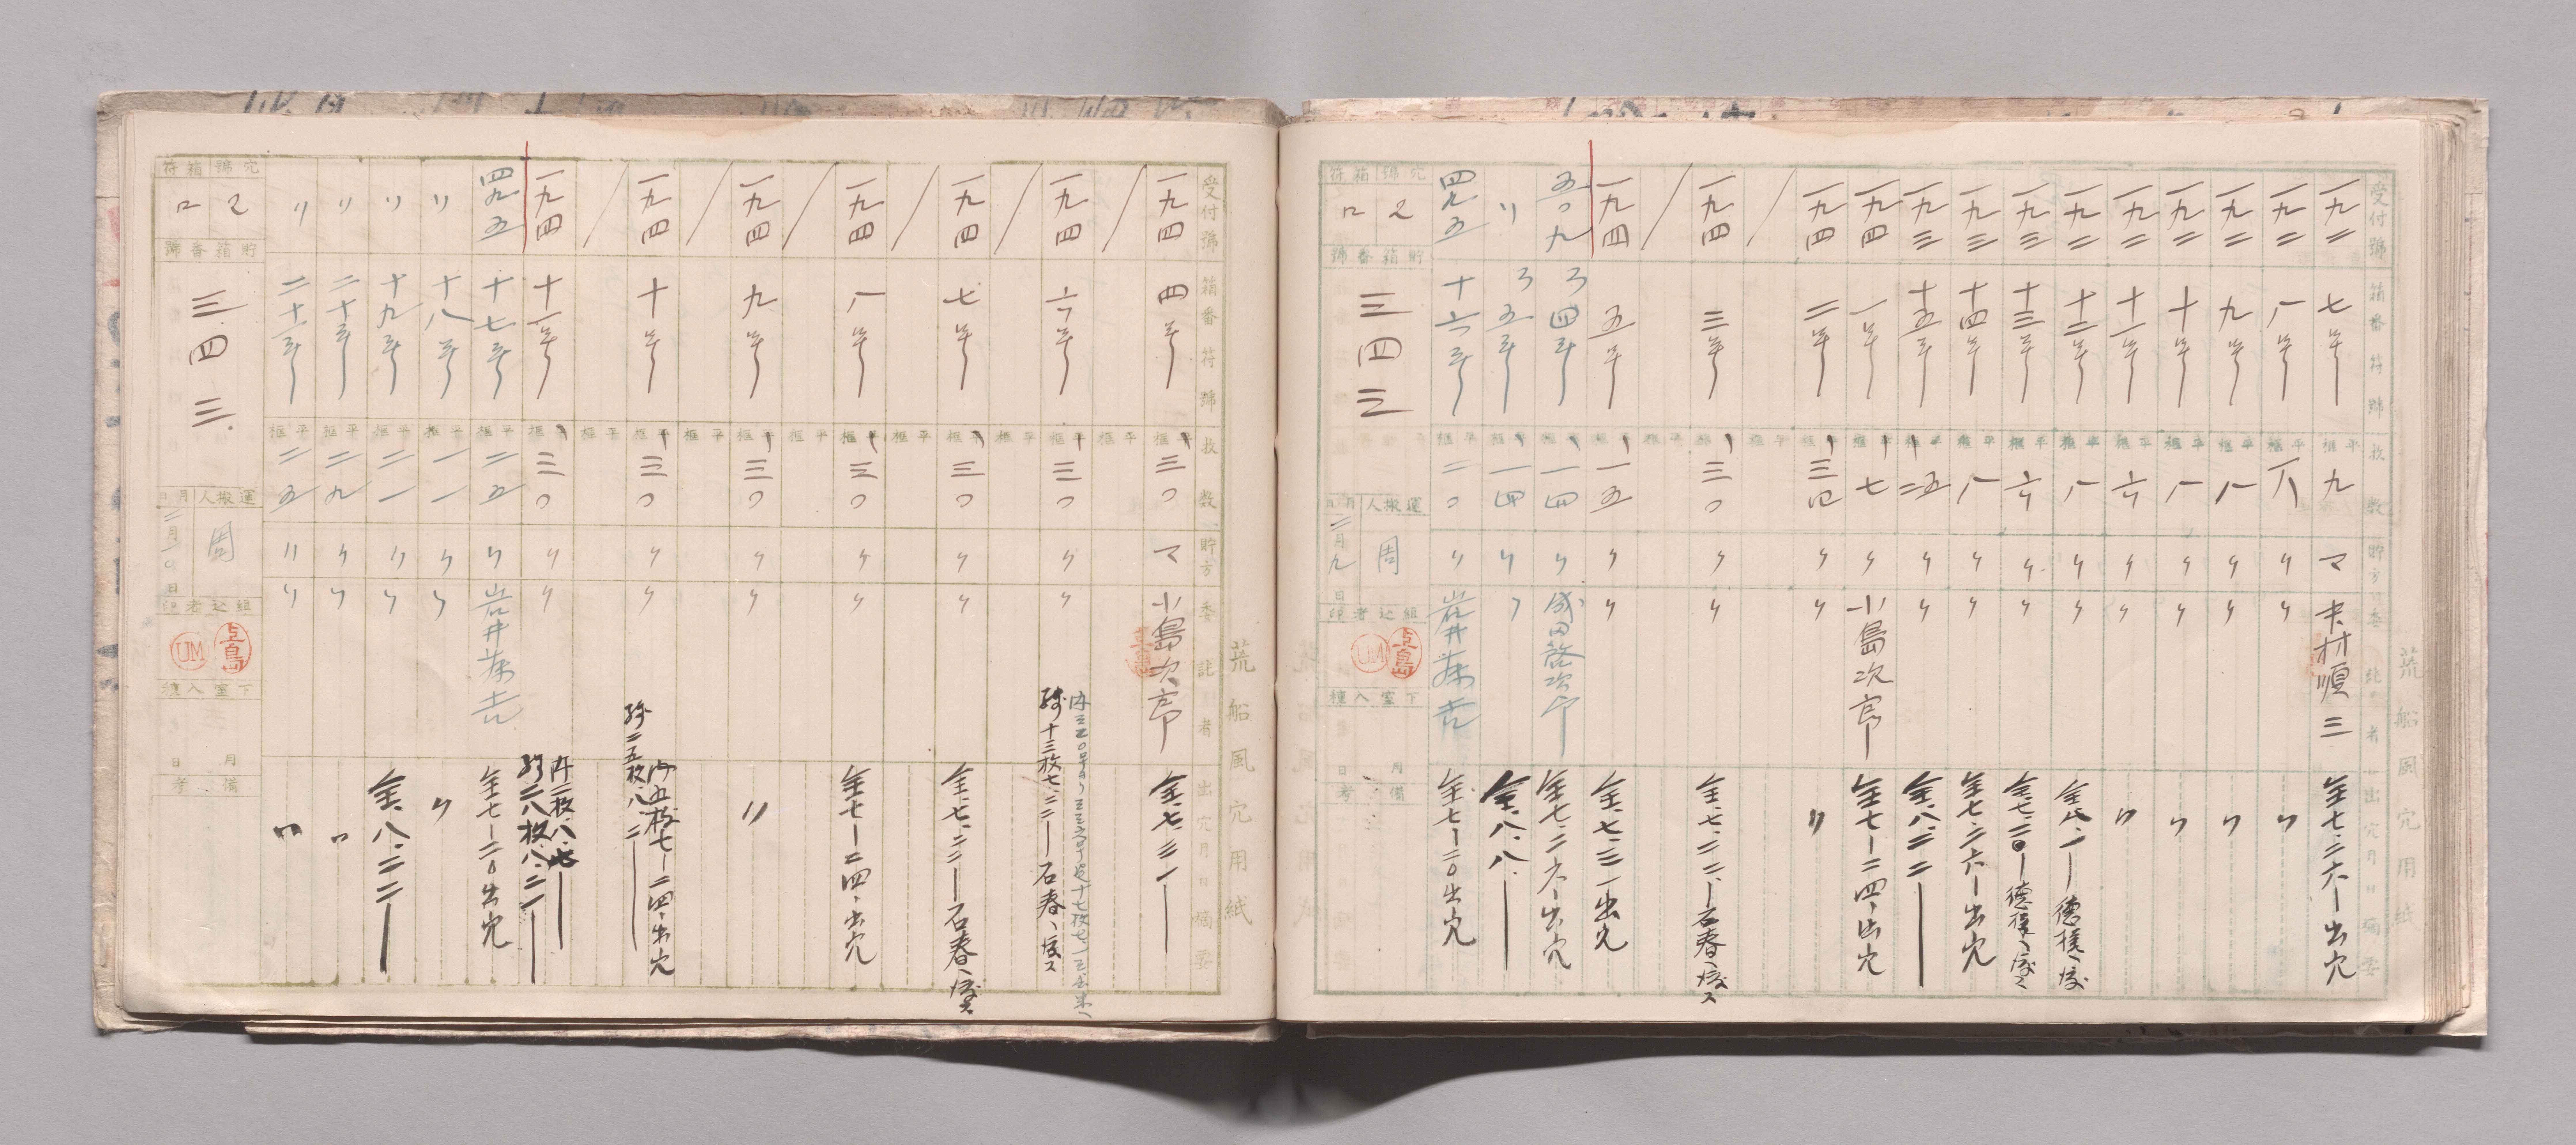 荒船風穴用紙
受付號 箱番符號 枚数 貯方 委託者 出穴月日摘要
一九二 七 九 マ 木村順三 全七、二六 出穴
一九二 八 八 〃 〃 〃
一九二 九 八 〃 〃 〃
一九二 十 八 〃 〃 〃
一九二 十一 六 〃 〃 〃
一九二 十二 八 〃 〃 全八、一
一九三 十三 六 〃 〃 全七、二〇
一九三 十四 八 〃 〃 全七、二六 出穴
一九三 十五 二五 〃 〃 全、八、二二
一九四 一 七 〃 小島次郎 全七 二四、出穴
一九四 二 三四 〃 〃 〃
一九四 三 三〇 〃 〃 全、七、二二、石春、渡ス
一九四 五 一五 〃 〃 全、七、三一出穴
五〇九 ろ四 一四 〃 成田啓次郎 全七、二六 出穴
〃 ろ五 一四 〃 〃 全、八、八
四九五 十六 二〇 〃 岩井藤吉 全七 二〇出穴
穴號 箱符
2 ロ
貯箱番號
三四三
運搬人 月日
周 二月九日
組込者印
上島 UM
下室入種
月 日
備考
荒船風穴用紙
受付號 箱番符號 枚数 貯方 委託者 出穴月日摘要
一九四 四 三〇 マ 小島次郎 全、七、三一
一九四 六 三〇 〃 〃
残十三枚七、二二 石春、渡ス
一九四 七 三〇 〃 〃 全、七、二二 石春、渡ス
一九四 八 三〇 〃 〃 全七 二四、出穴
一九四 九 三〇 〃 〃 〃
一九四 十 三〇 〃 〃 内五枚七 二四、出穴
残二五枚、八、二
一九四 十一 三〇 〃 〃 内二枚、八、七
残二八枚、八、二二
四九五 十七 二五 〃 岩井藤吉 全七 二〇出穴
〃 十八 一一 〃 〃 〃
〃 十九 二一 〃 〃 全、八、二二
〃 二十 二九 〃 〃 〃
〃 二十一 二五 〃 〃 〃
穴號 箱符
2 ロ
貯箱番號
三四三
運搬人 月日
周 二月一〇日
組込者印
上島 UM
下室入種
月 日
備考